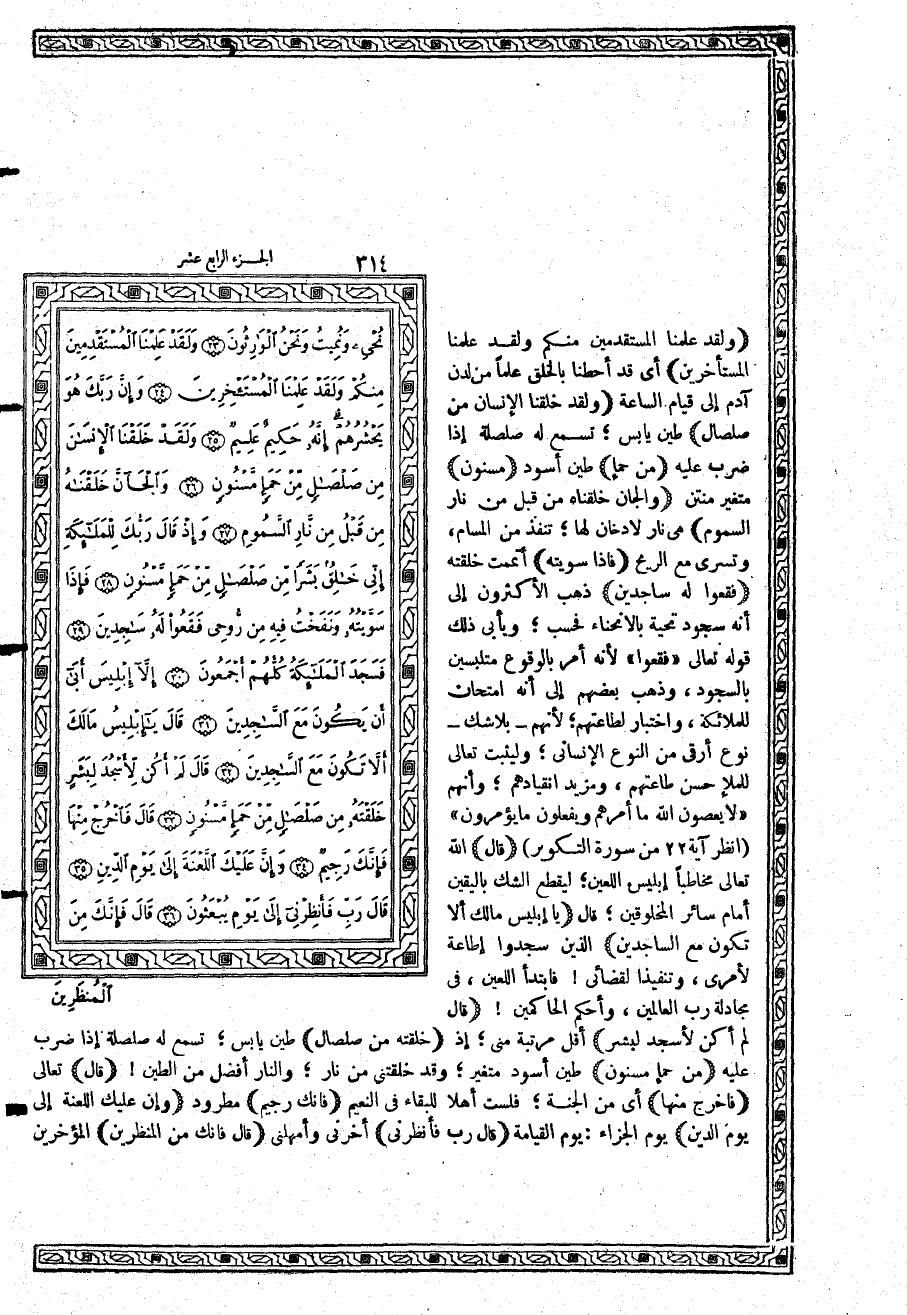 ٣١٤ الجزء الرابع عشر
نُحْيِۦ وَنُمِيتُ وَنَحْنُ ٱلْوَٰرِثُونَ ﴿٢٣﴾ وَلَقَدْ عَلِمْنَا ٱلْمُسْتَقْدِمِينَ
مِنكُمْ وَلَقَدْ عَلِمْنَا ٱلْمُسْتَـْٔخِرِينَ ﴿٢٤﴾ وَإِنَّ رَبَّكَ هُوَ
يَحْشُرُهُمْ ۚ إِنَّهُۥ حَكِيمٌ عَلِيمٌ ﴿٢٥﴾ وَلَقَدْ خَلَقْنَا ٱلْإِنسَٰنَ
مِن صَلْصَٰلٍ مِّنْ حَمَإٍ مَّسْنُونٍ ﴿٢٦﴾ وَٱلْجَآنَّ خَلَقْنَٰهُ
مِن قَبْلُ مِن نَّارِ ٱلسَّمُومِ ﴿٢٧﴾ وَإِذْ قَالَ رَبُّكَ لِلْمَلَٰٓئِكَةِ
إِنِّى خَٰلِقٌۢ بَشَرًا مِّن صَلْصَٰلٍ مِّنْ حَمَإٍ مَّسْنُونٍ ﴿٢٨﴾ فَإِذَا
سَوَّيْتُهُۥ وَنَفَخْتُ فِيهِ مِن رُّوحِى فَقَعُوا۟ لَهُۥ سَٰجِدِينَ ﴿٢٩﴾
فَسَجَدَ ٱلْمَلَٰٓئِكَةُ كُلُّهُمْ أَجْمَعُونَ ﴿٣٠﴾ إِلَّآ إِبْلِيسَ أَبَىٰٓ
أَن يَكُونَ مَعَ ٱلسَّٰجِدِينَ ﴿٣١﴾ قَالَ يَٰٓإِبْلِيسُ مَالَكَ
أَلَّا تَكُونَ مَعَ ٱلسَّٰجِدِينَ ﴿٣٢﴾ قَالَ لَمْ أَكُن لِّأَسْجُدَ لِبَشَرٍ
خَلَقْتَهُۥ مِن صَلْصَٰلٍ مِّنْ حَمَإٍ مَّسْنُونٍ ﴿٣٣﴾ قَالَ فَٱخْرُجْ مِنْهَا
فَإِنَّكَ رَجِيمٌ ﴿٣٤﴾ وَإِنَّ عَلَيْكَ ٱللَّعْنَةَ إِلَىٰ يَوْمِ ٱلدِّينِ ﴿٣٥﴾
قَالَ رَبِّ فَأَنظِرْنِىٓ إِلَىٰ يَوْمِ يُبْعَثُونَ ﴿٣٦﴾ قَالَ فَإِنَّكَ مِنَ
ٱلْمُنظَرِينَ
(ولقد علمنا المستقدمين منكم ولقد علمنا
المستأخرين) أى قد أحطنا بالخلق علماً من لدن
آدم إلى قيام الساعة (ولقد خلقنا الإنسان من
صلصال) طين يابس ؛ تسمع له صلصلة إذا
ضرب عليه (من حمإ) طين أسود (مسنون)
متغير منتن (والجان خلقناه من قبل من نار
السموم) هى نار لادخان لها ؛ تنفذ من المسام،
وتسرى مع الريح (فاذا سويته) أتممت خلقته
(فقعوا له ساجدين) ذهب الأكثرون إلى
أنه سجود تحية بالانحناء فحسب ؛ ويأبى ذلك
قوله تعالى «فقعوا» لأنه أمر بالوقوع متلبسين
بالسجود ، وذهب بعضهم إلى أنه امتحان
للملائكة ، واختبار لطاعتهم؛ لأنهم ــ بلاشك ــ
نوع أرقى من النوع الإنسانى ؛ وليثبت تعالى
للملإ حسن طاعتهم ، ومزيد انقيادهم ؛ وأنهم
«لا يعصون الله ما أمرهم ويفعلون مايؤمرون»
(انظر آية ٢٢ من سورة التكوير) (قال) الله
تعالى مخاطباً إبليس اللعين؛ ليقطع الشك باليقين
أمام سائر المخلوقين ؛ قال (يا إبليس مالك ألا
تكون مع الساجدين) الذين سجدوا إطاعة
لأمرى ، وتنفيذا لقضائى ! فابتدأ اللعين ، فى
مجادلة رب العالمين ، وأحكم الحاكمين ! (قال
لم أكن لأسجد لبشر) أقل مرتبة منى ؛ إذ (خلقته من صلصال) طين يابس ؛ تسمع له صلصلة إذا ضرب
عليه (من حمإ مسنون) طين أسود متغير ؛ وقد خلقتنى من نار ؛ والنار أفضل من الطين ! (قال) تعالى
(فاخرج منها) أى من الجنة ؛ فلست أهلا للبقاء فى النعيم (فانك رجيم) مطرود (وإن عليك اللعنة إلى
يوم الدين) يوم الجزاء : يوم القيامة (قال رب فأنظرنى) أخرنى وأمهلنى (قال فانك من المنظرين) المؤخرين